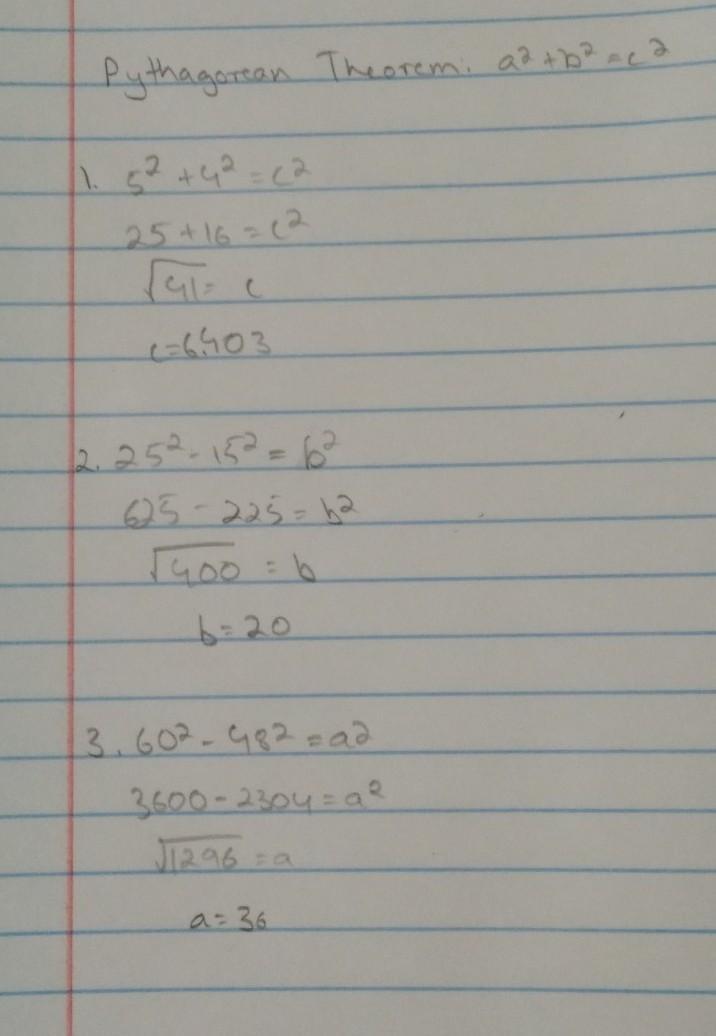 Pythagorean Theorem: a² + b² = c²
1. 5² + 4² = c²
25 + 16 = c²
√41 = c
c = 6.403
2. 25² - 15² = b²
625 - 225 = b²
√400 = b
b = 20
3. 60² - 48² = a²
3600 - 2304 = a²
√1296 = a
a = 36